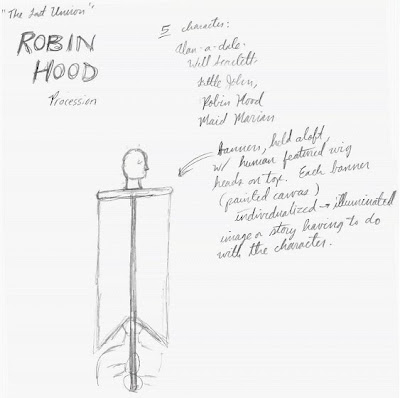 "The Last Unicorn"
ROBIN
HOOD
Procession
5 characters:
Alan-a-dale
Will Scarlett
Little John,
Robin Hood
Maid Marian
banners, held aloft
w/ human featured wig
heads on top. Each banner
(painted canvas)
individualized → illuminated
image a story having to do
with the character.